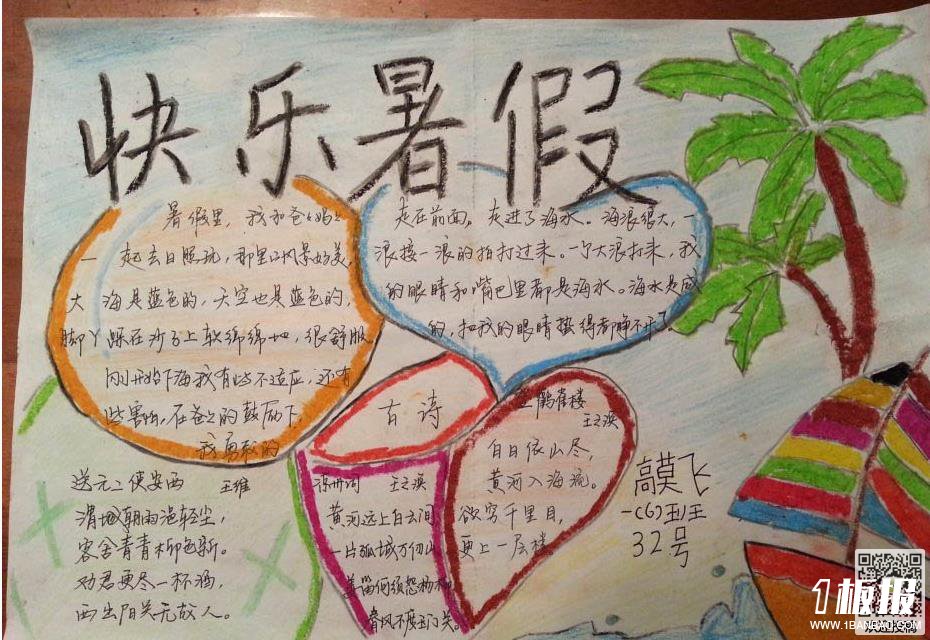 快乐暑假
暑假里，我和爸爸妈妈
一起去日照玩，那里的风景好美，
大海是蓝色的，天空也是蓝色的，
脚丫踩在沙子上软绵绵地，很舒服
刚开始下海我有些不适应，还有
些害怕，在爸爸的鼓励下，
我勇敢的
走在前面，走进了海水。海浪很大，一
浪接一浪的拍打过来。一个大浪打来，我
的眼睛和嘴巴里都是海水。海水是咸
的，把我的眼睛蛰得都睁不开了。
古诗
送元二使安西 王维
渭城朝雨浥轻尘，
客舍青青柳色新。
劝君更尽一杯酒，
西出阳关无故人。
凉州词 王之涣
黄河远上白云间
一片孤城万仞山
羌笛何须怨杨柳
春风不度玉门关。
登鹳雀楼
王之涣
白日依山尽，
黄河入海流。
欲穷千里目，
更上一层楼
高莫飞
一(6)班
32号
1板报
WWW.1BANBAO.COM